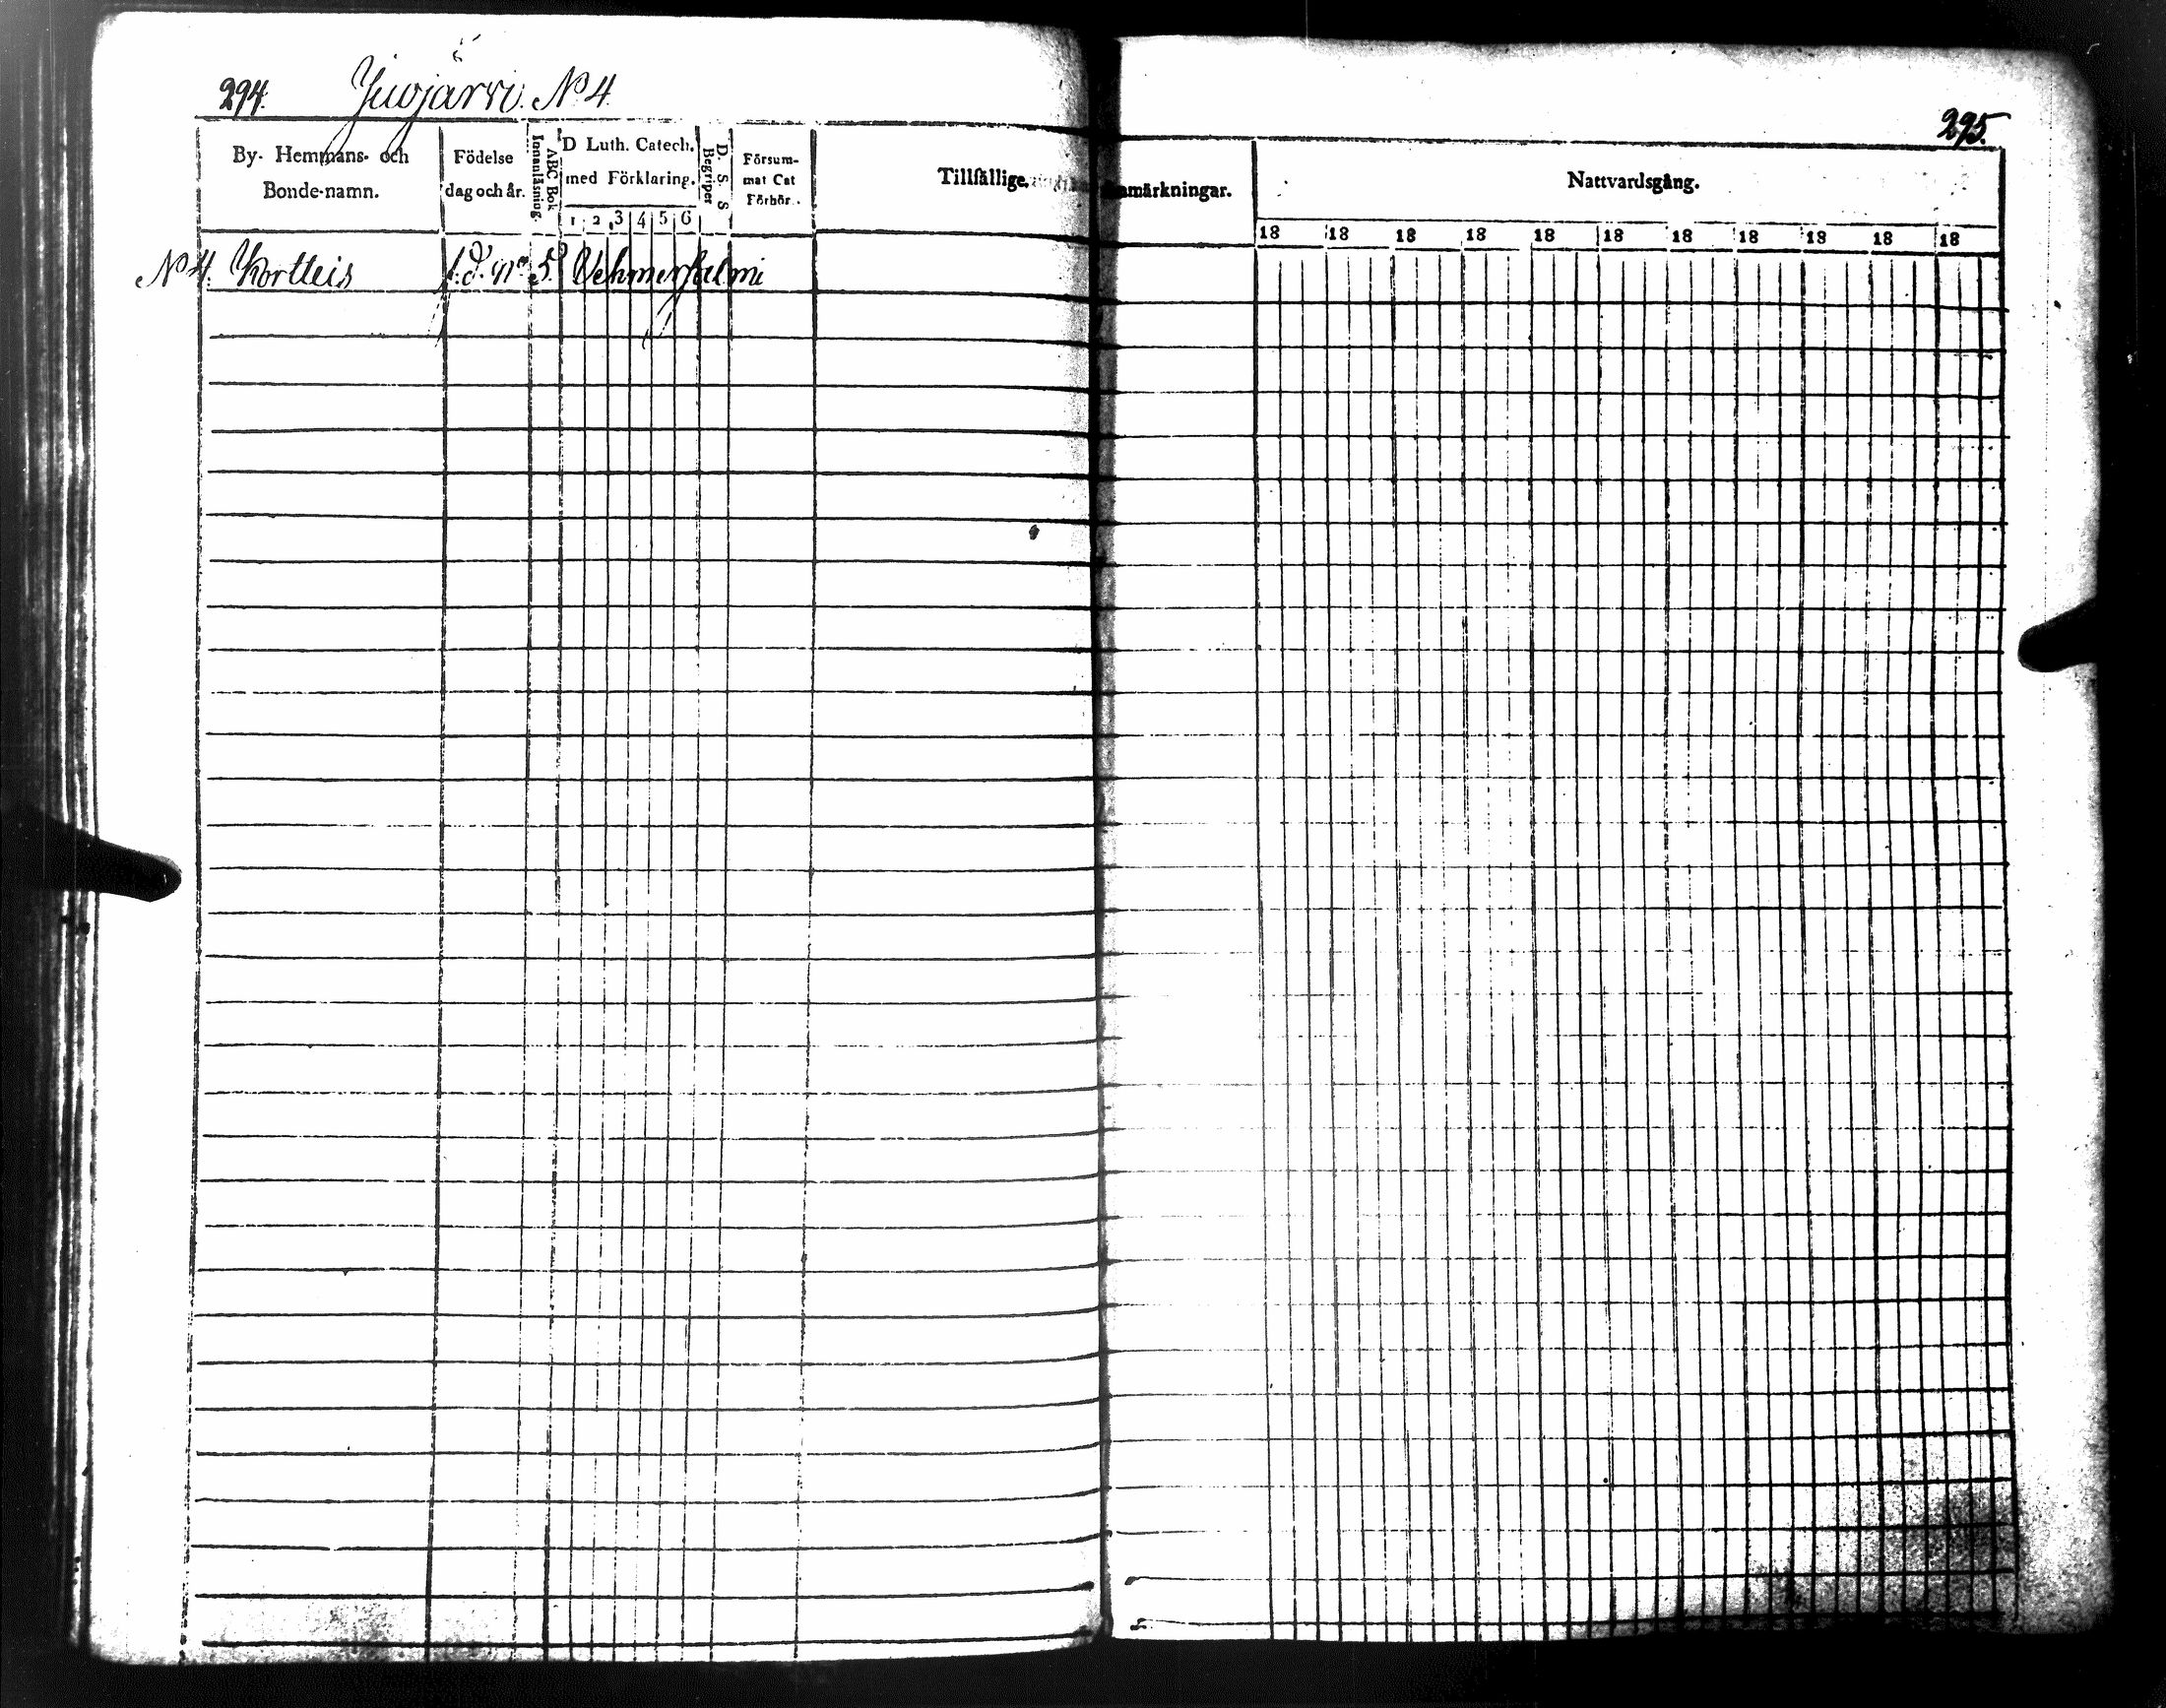 294. Juojärvi. N:o 4
By- Hemmans- och Bonde-namn.
Födelse dag och år.
Innanläsning.
ABC Bok
D Luth. Catech. med Förklaring.
1 2 3 4 5 6
D. S. S
Begriper
Försum- mat Cat Förhör.
Tillfällige
N:o 4. Kortteis f. d. n:o 5. Vehmersalmi
295.
Anmärkningar.
Nattvardsgång.
18 18 18 18 18 18 18 18 18 18 18